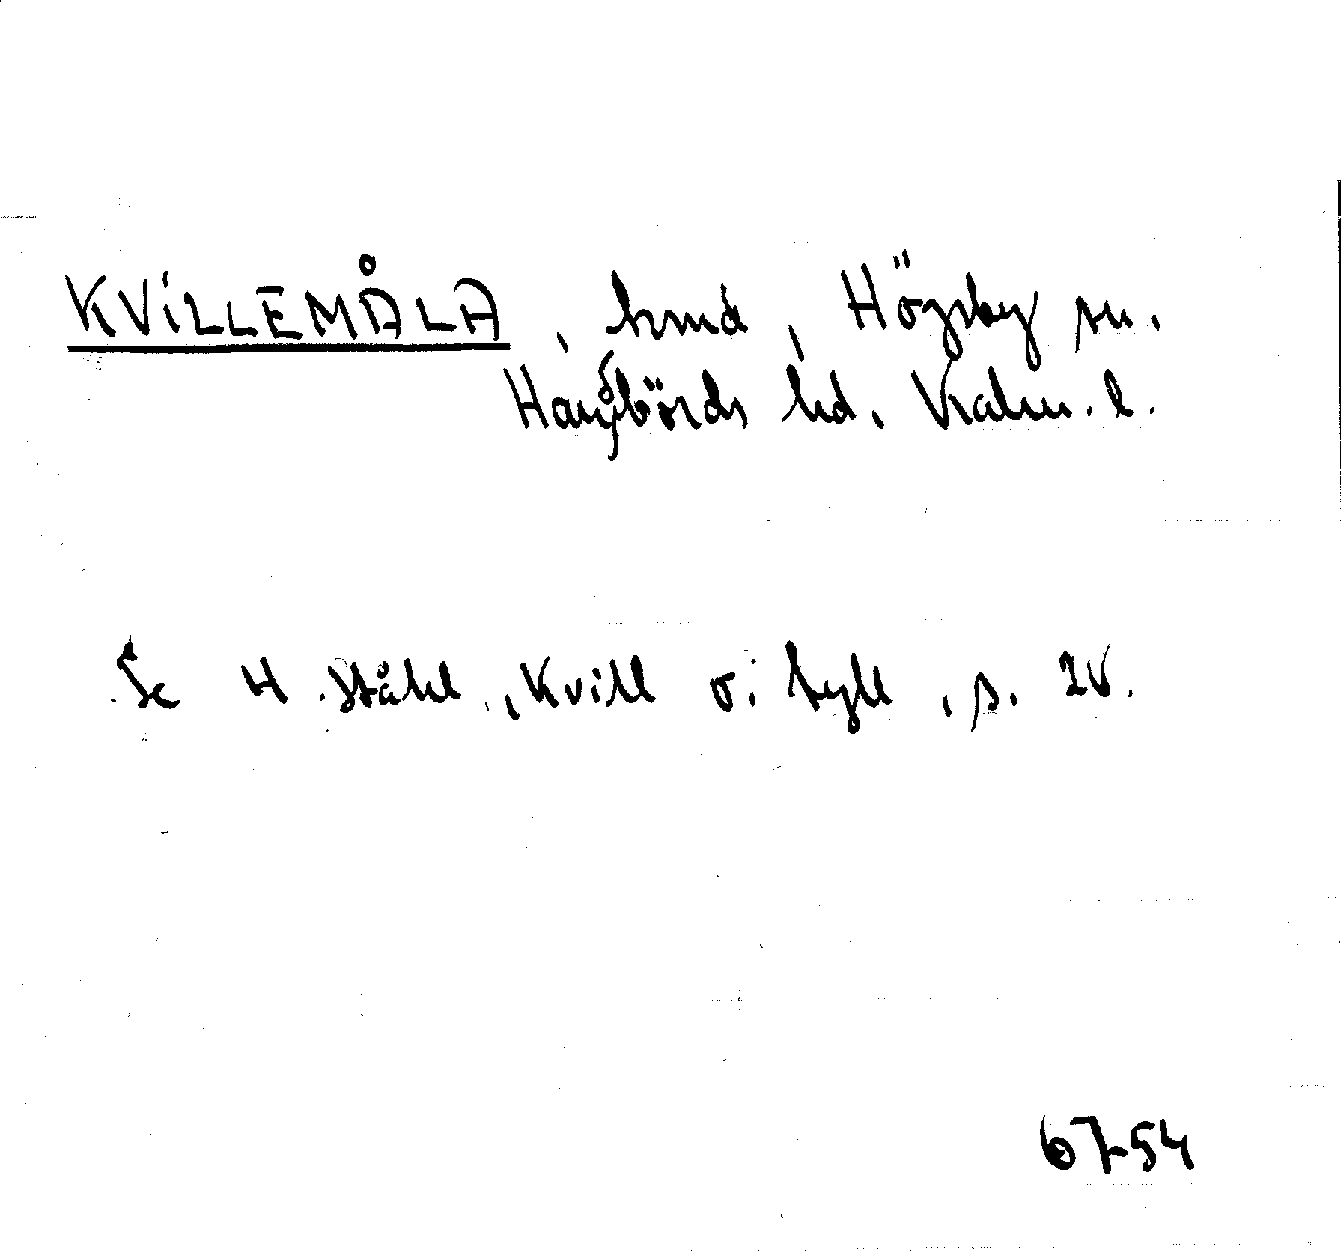 KVILLEMÅLA, hmd, Högsby sn.
Handbörds hd. Kalm. l.
Se H Ståhl, Kvill o. tyll, s. 20.
67-54